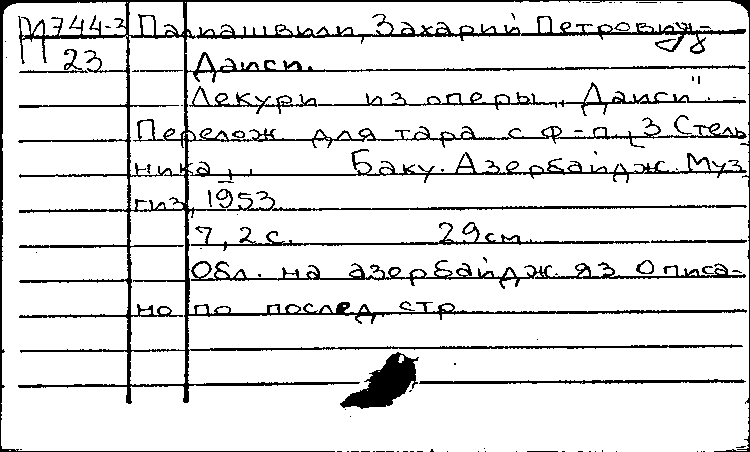 М744-3 Палиашвили, Захарий Петрович
П 23 Даиси.
Лекури из оперы „Даиси".
Перелож для тара с ф-п. [З Стель
ника]. Баку. Азербайдж. Муз
гиз, 1953.
7, 2 с. 29 см
Обл. на азербайдж. яз Описа-
но по послед. стр